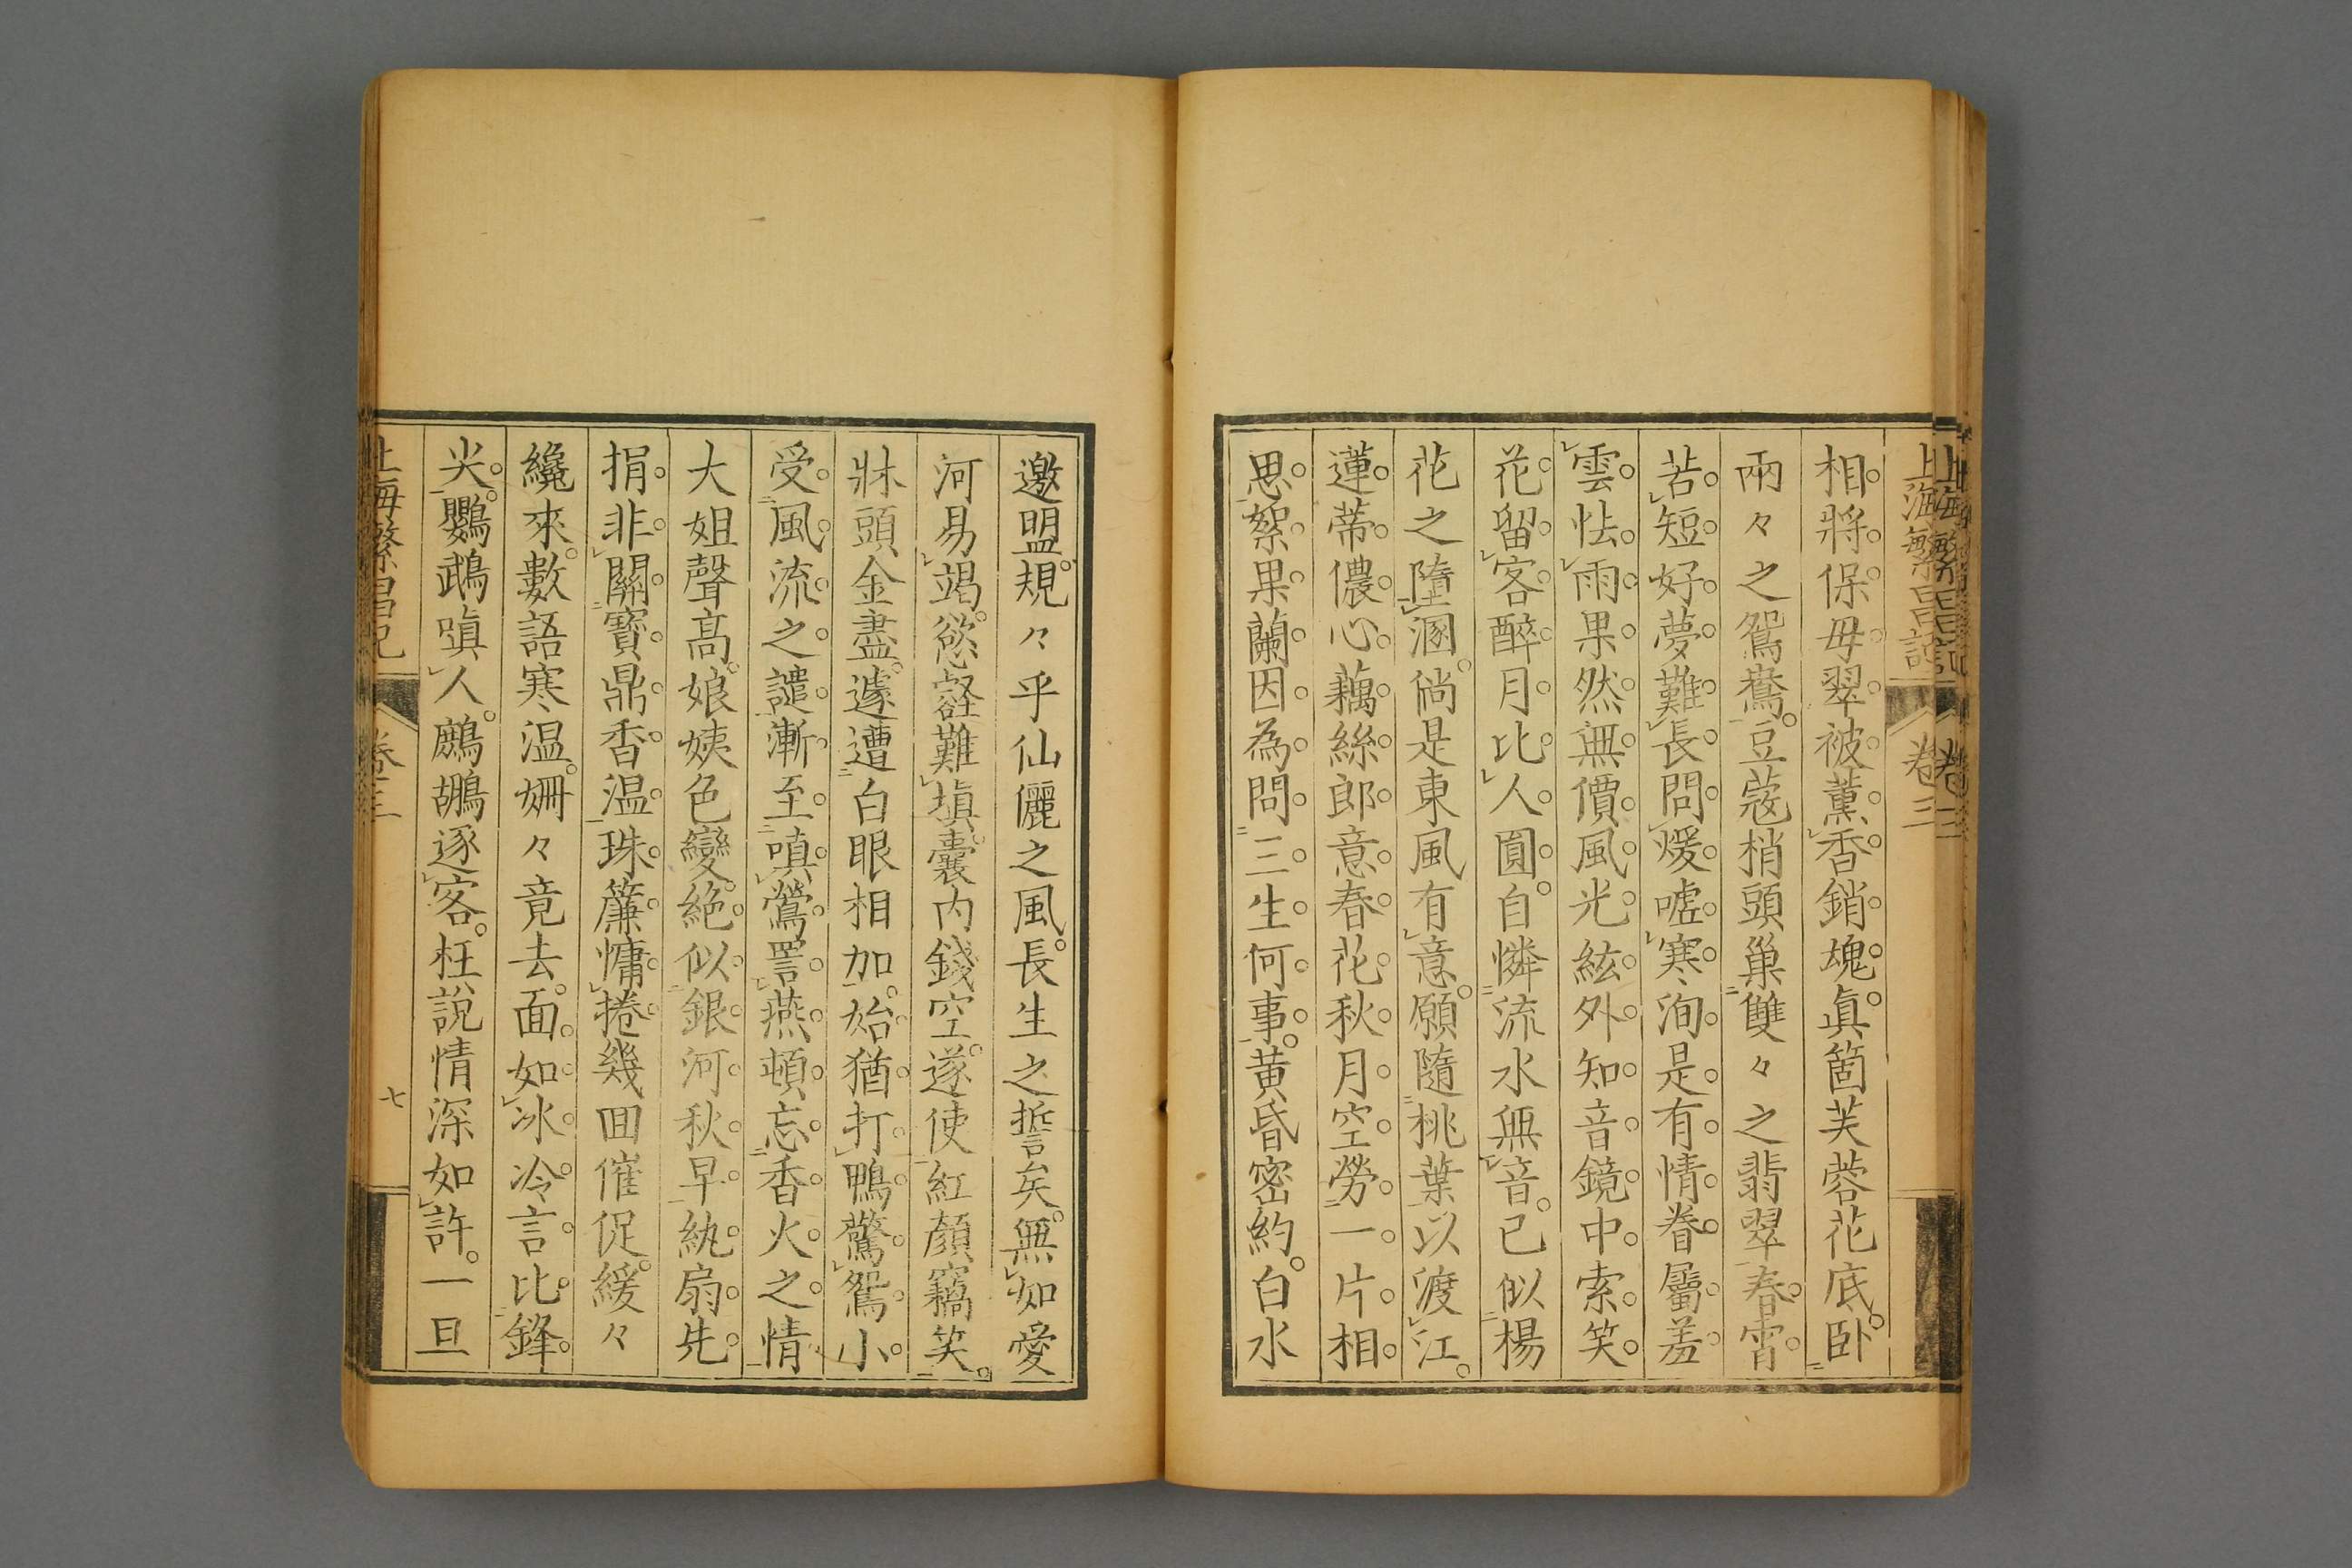 上海繁昌記 卷三
相將保毋翠被薰香銷魂真箇芙蓉花底卧
兩々之鴛鴦豆蔻梢頭巢雙々之翡翠春宵
苦短好夢難長問煖噓寒洵是有情眷屬羞
雲怯雨果然無價風光絃外知音鏡中索笑
花留客醉月比人圓自憐流水無音已似楊
花之墮溷倘是東風有意願隨桃葉以渡江
蓮蒂儂心藕絲郎意春花秋月空勞一片相
思絮果蘭因為問三生何事黄昏密約白水
邀盟規々乎仙儷之風長生之誓矣無如愛
河易竭慾壑難塡囊内錢空遂使紅顏竊笑
牀頭金盡遽遭白眼相加始猶打鴨驚鴛小
受風流之譴漸至嗔鶯詈燕頓忘香火之情
大姐聲高娘姨色變絶似銀河秋早紈扇先
捐非關寶鼎香温珠簾慵捲幾回催促緩々
纔來數語寒温姍々竟去面如冰冷言比鋒
尖鸚鵡嗔人鷓鶘逐客枉說情深如許一旦
上海繁昌記 卷三 七